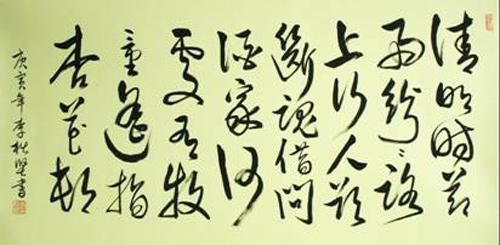 清明時節
雨紛紛路
上行人欲
斷魂借問
酒家何
處有牧
童遥指
杏花村
庚寅年李書